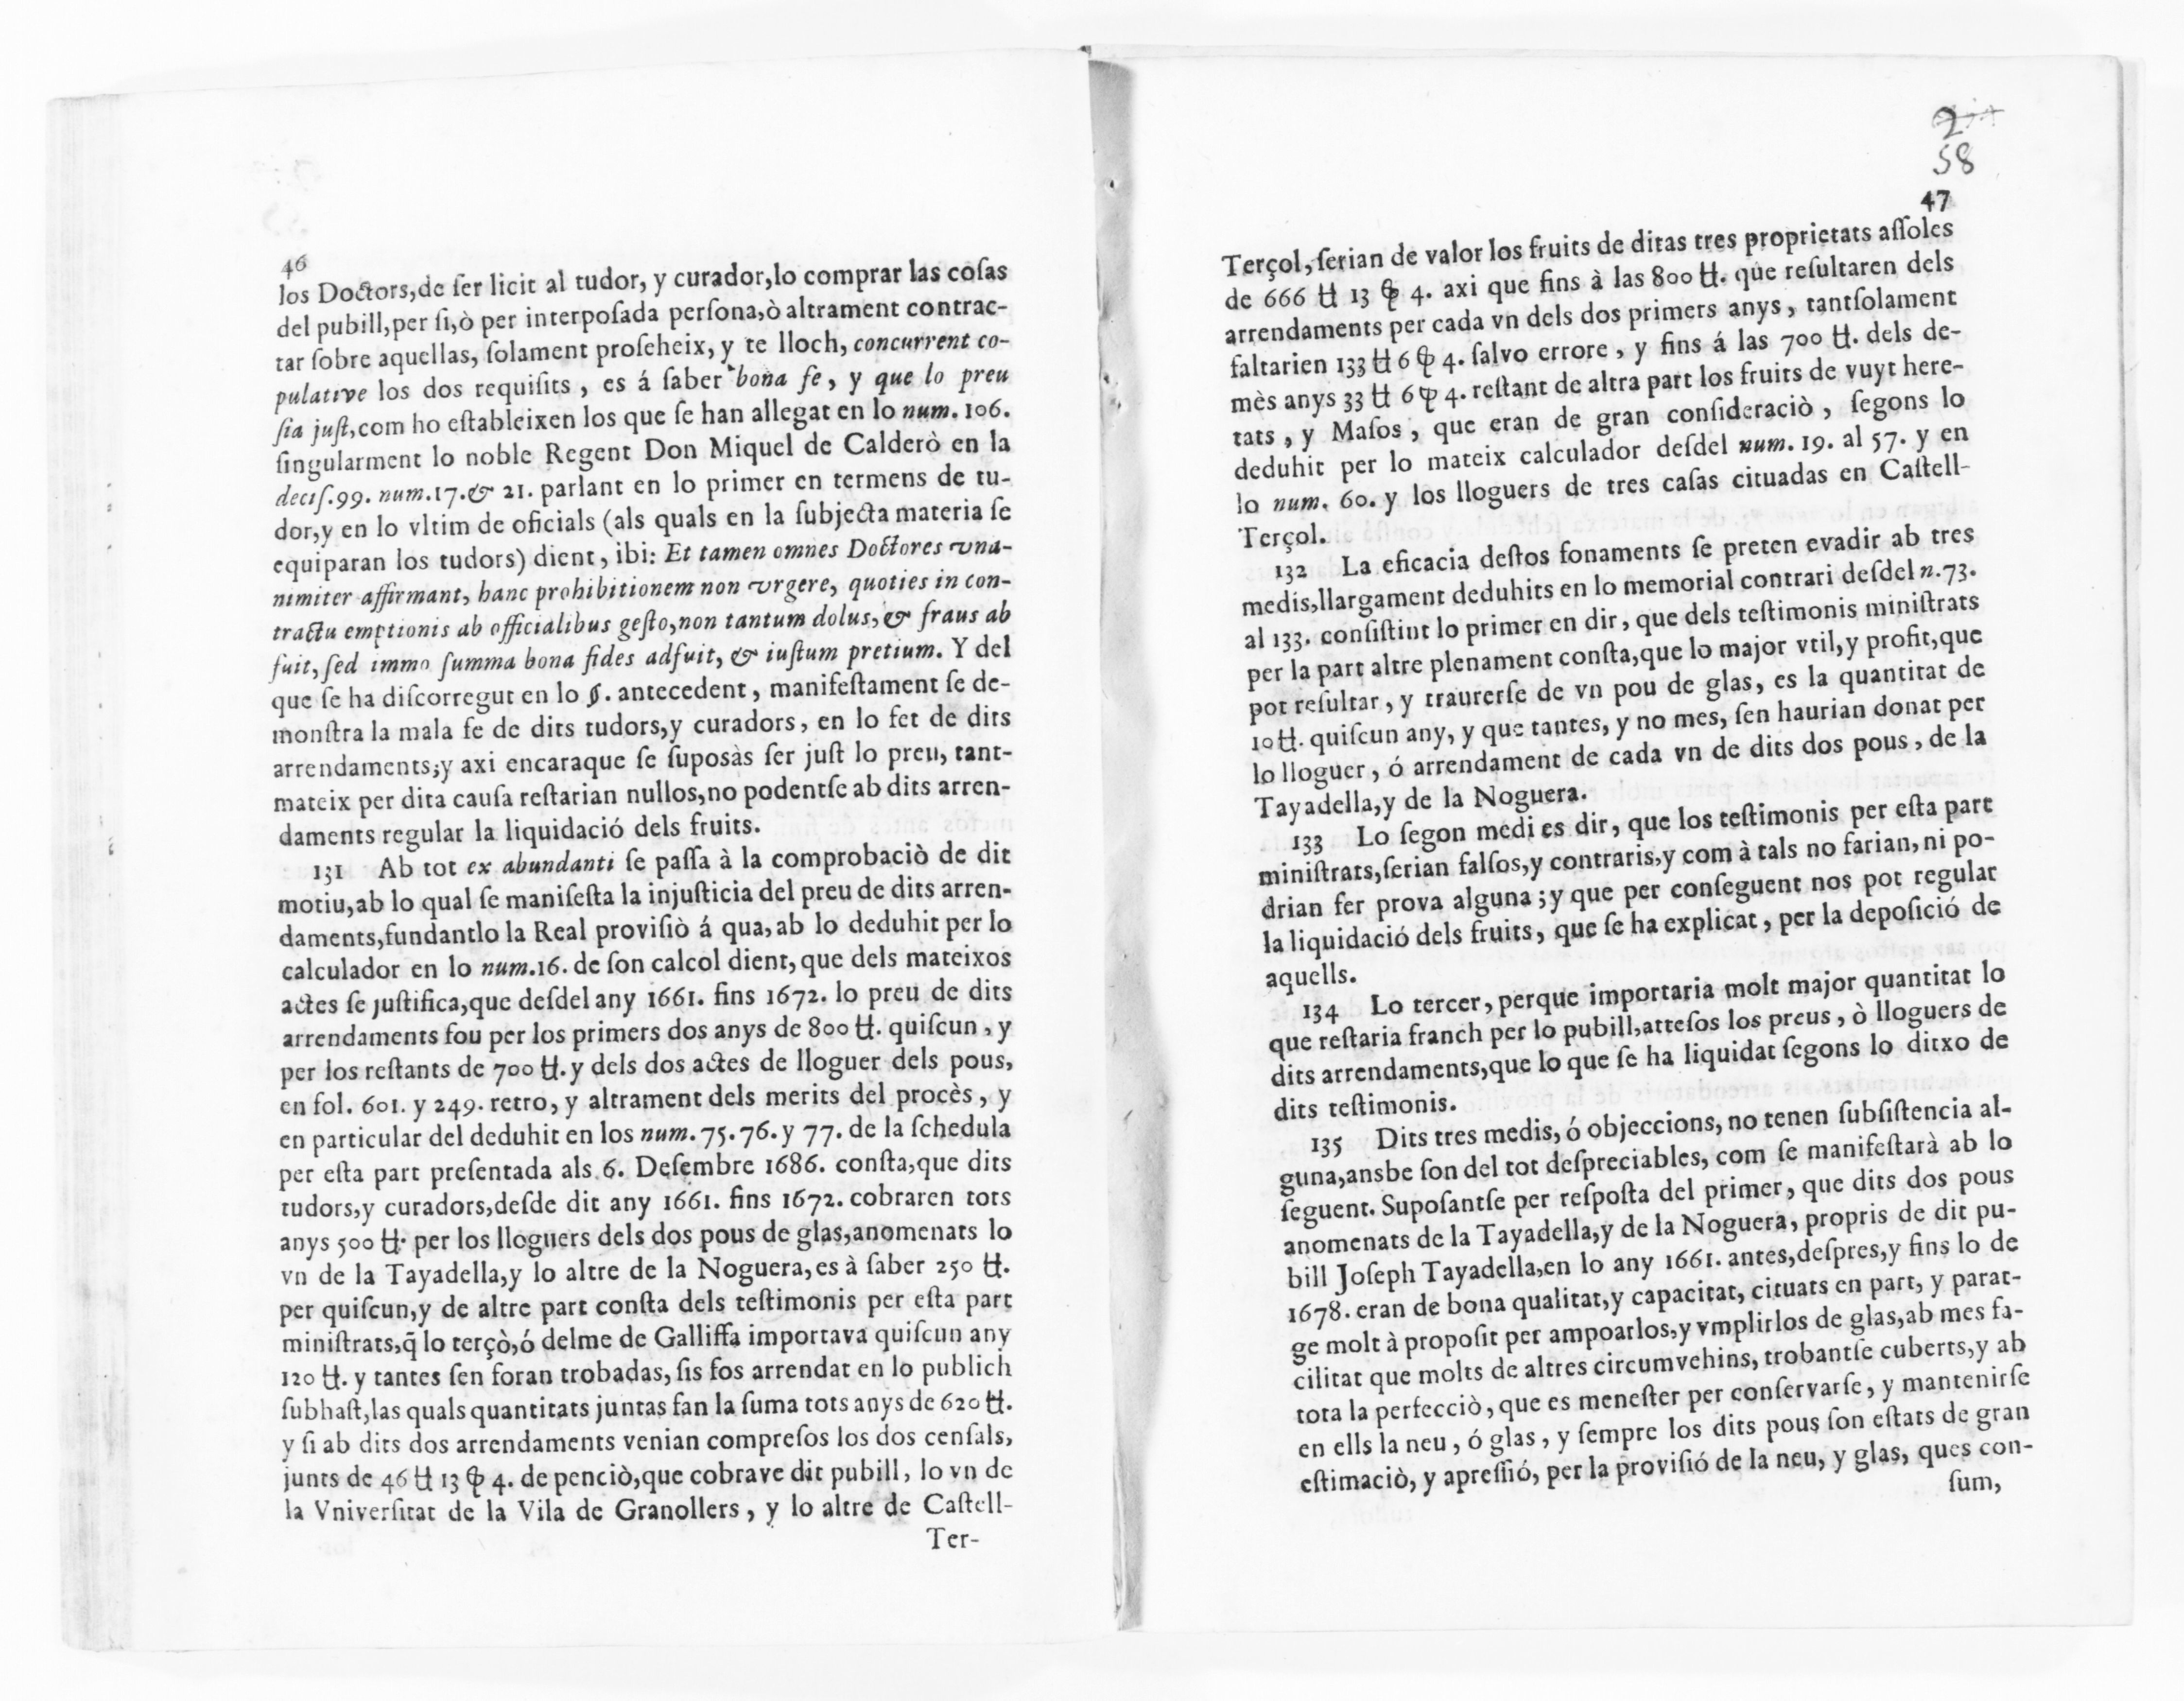 46
los Doctors,de ſer licit al tudor, y curador,lo comprar las coſas
del pubill,per ſi,ò per interpoſada perſona,ò altrament contrac-
tar ſobre aquellas, ſolament proſeheix, y te lloch, concurrent co-
pulative los dos requiſits , es á ſaber bona fe , y que lo preu
ſia juſt,com ho eſtableixen los que ſe han allegat en lo num. 106.
ſingularment lo noble Regent Don Miquel de Calderò en la
deciſ.99. num.17.& 21. parlant en lo primer en termens de tu-
dor,y en lo vltim de oficials (als quals en la ſubjecta materia ſe
equiparan los tudors) dient, ibi: Et tamen omnes Doctores vna-
nimiter affirmant, hanc prohibitionem non vrgere, quoties in con-
tractu emptionis ab officialibus geſto,non tantum dolus, & fraus ab
fuit, ſed immo ſumma bona fides adfuit, & iuſtum pretium. Y del
que ſe ha diſcorregut en lo §. antecedent , manifeſtament ſe de-
monſtra la mala fe de dits tudors,y curadors, en lo fet de dits
arrendaments;y axi encaraque ſe ſuposàs ſer juſt lo preu, tant-
mateix per dita cauſa reſtarian nullos,no podentſe ab dits arren-
daments regular la liquidació dels fruits.
131 Ab tot ex abundanti ſe paſſa à la comprobaciò de dit
motiu,ab lo qual ſe maniſeſta la injuſticia del preu de dits arren-
daments,fundantlo la Real proviſiò á qua,ab lo deduhit per lo
calculador en lo num.16. de ſon calcol dient, que dels mateixos
actes ſe juſtifica,que deſdel any 1661. fins 1672. lo preu de dits
arrendaments fou per los primers dos anys de 800 ₶. quiſcun , y
per los reſtants de 700 ₶. y dels dos actes de lloguer dels pous,
en fol. 601. y 249. retro, y altrament dels merits del procès , y
en particular del deduhit en los num. 75. 76. y 77. de la ſchedula
per eſta part preſentada als 6. Deſembre 1686. conſta,que dits
tudors,y curadors,deſde dit any 1661. fins 1672. cobraren tots
anys 500 ₶. per los lloguers dels dos pous de glas,anomenats lo
vn de la Tayadella,y lo altre de la Noguera, es à ſaber 250 ₶.
per quiſcun,y de altre part conſta dels teſtimonis per eſta part
miniſtrats,q̃ lo terçò,ó delme de Galliffa importava quiſcun any
120 ₶. y tantes ſen foran trobadas, ſis fos arrendat en lo publich
ſubhaſt,las quals quantitats juntas fan la ſuma tots anys de 620 ₶.
y ſi ab dits dos arrendaments venian compreſos los dos cenſals,
junts de 46 ₶ 13 ꝕ 4. de penciò,que cobrave dit pubill, lo vn de
la Vniverſitat de la Vila de Granollers , y lo altre de Caſtell-
Ter-
2
58
47
Terçol, ſerian de valor los fruits de ditas tres proprietats aſſoles
de 666 ₶ 13 ꝕ 4. axi que fins à las 800 ₶. que reſultaren dels
arrendaments per cada vn dels dos primers anys , tantſolament
faltarien 133 ₶ 6 ꝕ 4. ſalvo errore , y fins á las 700 ₶. dels de-
mès anys 33 ₶ 6 ꝕ 4. reſtant de altra part los fruits de vuyt here-
tats , y Maſos , que eran de gran conſideraciò , ſegons lo
deduhit per lo mateix calculador deſdel num. 19. al 57. y en
lo num. 60. y los lloguers de tres caſas cituadas en Caſtell-
Terçol.
132 La eficacia deſtos fonaments ſe preten evadir ab tres
medis,llargament deduhits en lo memorial contrari deſdel n.73.
al 133. conſiſtint lo primer en dir, que dels teſtimonis miniſtrats
per la part altre plenament conſta,que lo major vtil,y profit,que
pot reſultar , y traurerſe de vn pou de glas, es la quantitat de
10 ₶. quiſcun any, y que tantes, y no mes, ſen haurian donat per
lo lloguer , ó arrendament de cada vn de dits dos pous , de la
Tayadella,y de la Noguera.
133 Lo ſegon medi es dir , que los teſtimonis per eſta part
miniſtrats,ſerian falſos,y contraris,y com à tals no farian, ni po-
drian fer prova alguna ; y que per conſeguent nos pot regular
la liquidació dels fruits , que ſe ha explicat , per la depoſició de
aquells.
134 Lo tercer, perque importaria molt major quantitat lo
que reſtaria franch per lo pubill,atteſos los preus , ò lloguers de
dits arrendaments,que lo que ſe ha liquidat ſegons lo ditxo de
dits teſtimonis.
135 Dits tres medis, ó objeccions, no tenen ſubſiſtencia al-
guna,ansbe ſon del tot deſpreciables, com ſe manifeſtarà ab lo
ſeguent. Supoſantſe per reſpoſta del primer, que dits dos pous
anomenats de la Tayadella,y de la Noguera, propris de dit pu-
bill Joſeph Tayadella,en lo any 1661. antes,deſpres,y fins lo de
1678. eran de bona qualitat,y capacitat, cituats en part, y parat-
ge molt à propoſit per ampoarlos,y vmplirlos de glas,ab mes fa-
cilitat que molts de altres circumvehins, trobantſe cuberts,y ab
tota la perfecciò, que es meneſter per conſervarſe , y mantenirſe
en ells la neu , ó glas , y ſempre los dits pous ſon eſtats de gran
eſtimaciò, y apreſſió, per la proviſió de la neu, y glas, ques con-
ſum,